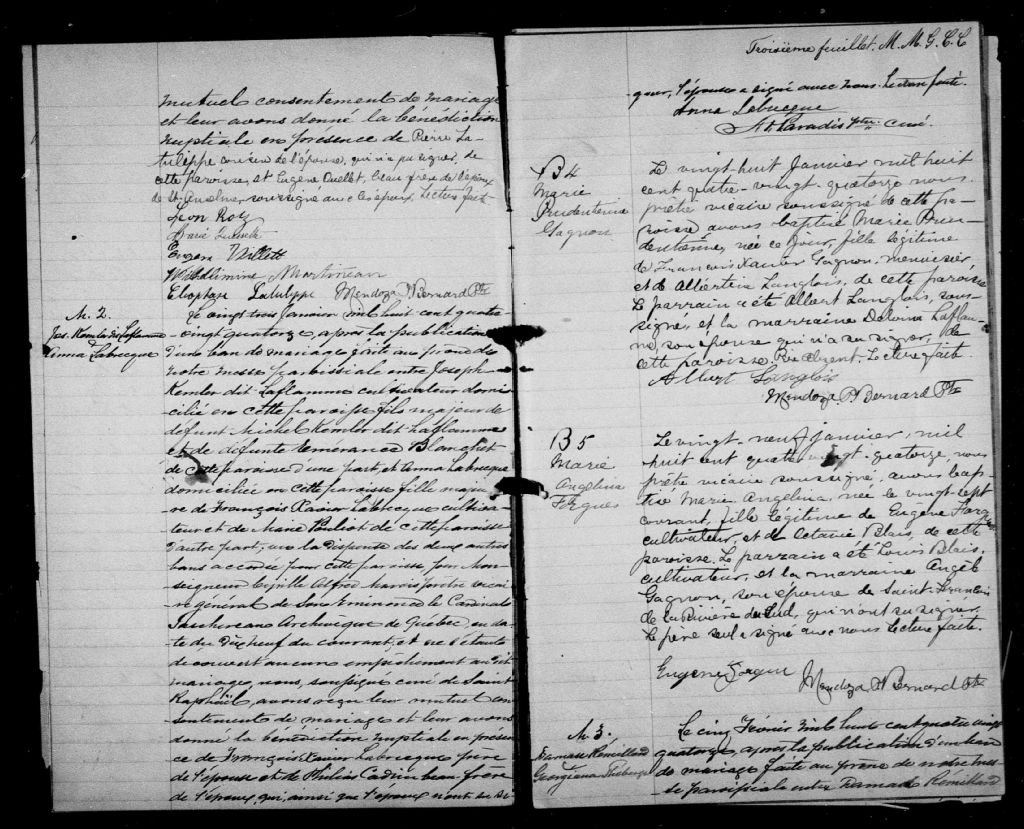 mutuel consentement de mariage
et leur avons donné la bénédiction
nuptiale en présence de Pierre La-
tulippe cousin de l'épouse, qui n'a pu signer, de
cette paroisse, et Eugène Ouellet, beau frère de l'époux
de St. Anselme, soussigné avec les époux. Lecture faite
Léon Roy
Marie
Eugene
Wilhelmine Martineau
Cleophas Latulippe Mendoza N Bernard Ptre
M. 2.
Jos. Kemler dit Laflamme
&
Anna Labrecque
Le vingt trois Janvier mil huit cent quatre
-vingt quatorze, après la publication
d'un ban de mariage faite au prône de
notre messe paroissiale entre Joseph
Kemler dit Laflamme cultivateur domi-
cilié en cette paroisse fils majeur de
défunt Michel Kemler dit Laflamme
et de défunte Temérance Blanchet
de cette paroisse d'une part, et Anna Labrecque
domiciliée en cette paroisse fille majeu-
re de François Xavier Labrecque cultiva-
teur et de Marie Pouliot de cette paroisse
d'autre part; vu la dispense des deux autres
bans accordée pour cette paroisse par Mon-
seigneur Cyrille Alfred Marois prêtre vicai-
re général de Son Eminence le Cardinal
Taschereau Archevêque de Québec, en da-
te du dixneuf du courant, et ne s'étant
découvert aucun empêchement au dit
mariage, nous, soussigné curé de Saint
Raphaël, avons reçu leur mutuel con-
sentement de mariage et leur avons
donné la bénédiction nuptiale en présen-
ce de François Xavier Labrecque père
de l'épouse et de beau frère
de l'époux qui, ainsi que l'époux n'ont su si-
Troisième feuillet. M. M. G. C. C
gner, l'épouse a signé avec nous. Lecture faite.
Anna Labrecque
Paradis Ptre curé.
B 4
Marie
Prudentienne
Gagnon
Le vingt-huit Janvier mil huit
cent quatre-vingt-quatorze nous
prêtre vicaire soussigné de cette pa-
roisse avons baptisé Marie Pru-
dentienne, née ce jour, fille légitime
de François Xavier Gagnon, menuisier
et de Albertine Langlois, de cette paroisse
Le parrain a été Albert Langlois, sous-
signé, et la marraine Délima Laflam-
me, son épouse qui n'a su signer, de
cette paroisse. Lecture faite.
Albert Langlois
Mendoza N Bernard Ptre
B 5
Marie
Angélina
Fergues
Le vingt-neuf janvier, mil
huit cent quatre-vingt-quatorze, nous
prêtre vicaire soussigné, avons bap-
tisé Marie Angelina, née le vingt-sept
courant, fille légitime de Eugène
cultivateur, et de Octavie Blais, de cette
paroisse. Le parrain a été Louis Blais,
cultivateur, et la marraine Angèle
Gagnon, son épouse de Saint-François
de la Rivière du Sud, qui n'ont su signer.
Le père seul a signé avec nous Lecture faite.
Eugene
Mendoza N Bernard Ptre
M 3.
Damase Rémillard
Georgiana
Le cinq Février mil huit cent quatre vingt
quatorze, après la publication d'un ban
de mariage faite au prône de notre mes-
se paroissiale entre Damase Rémillard